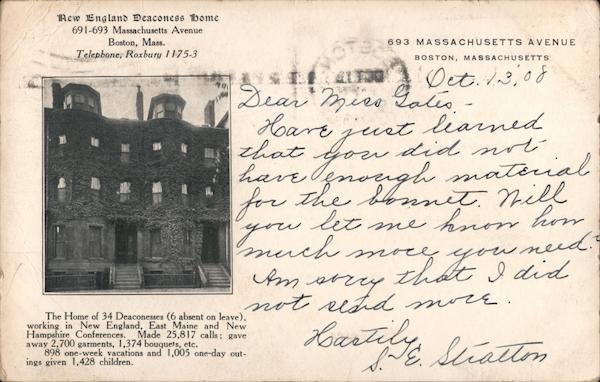 New England Deaconess Home
691-693 Massachusetts Avenue
Boston, Mass.
Telephone, Roxbury 1175-3
693 MASSACHUSETTS AVENUE
BOSTON, MASSACHUSETTS
Oct. 13, '08
Dear Miss Gates,-
Have just learned
that you did not
have enough material
for the bonnet. Will
you let me know how
much more you need?
Am sorry that I did
not send more.
Hastily,
S. E. Stratton
The Home of 34 Deaconesses (6 absent on leave),
working in New England, East Maine and New
Hampshire Conferences. Made 25,817 calls; gave
away 2,700 garments, 1,374 bouquets, etc.
898 one-week vacations and 1,005 one-day out-
ings given 1,428 children.